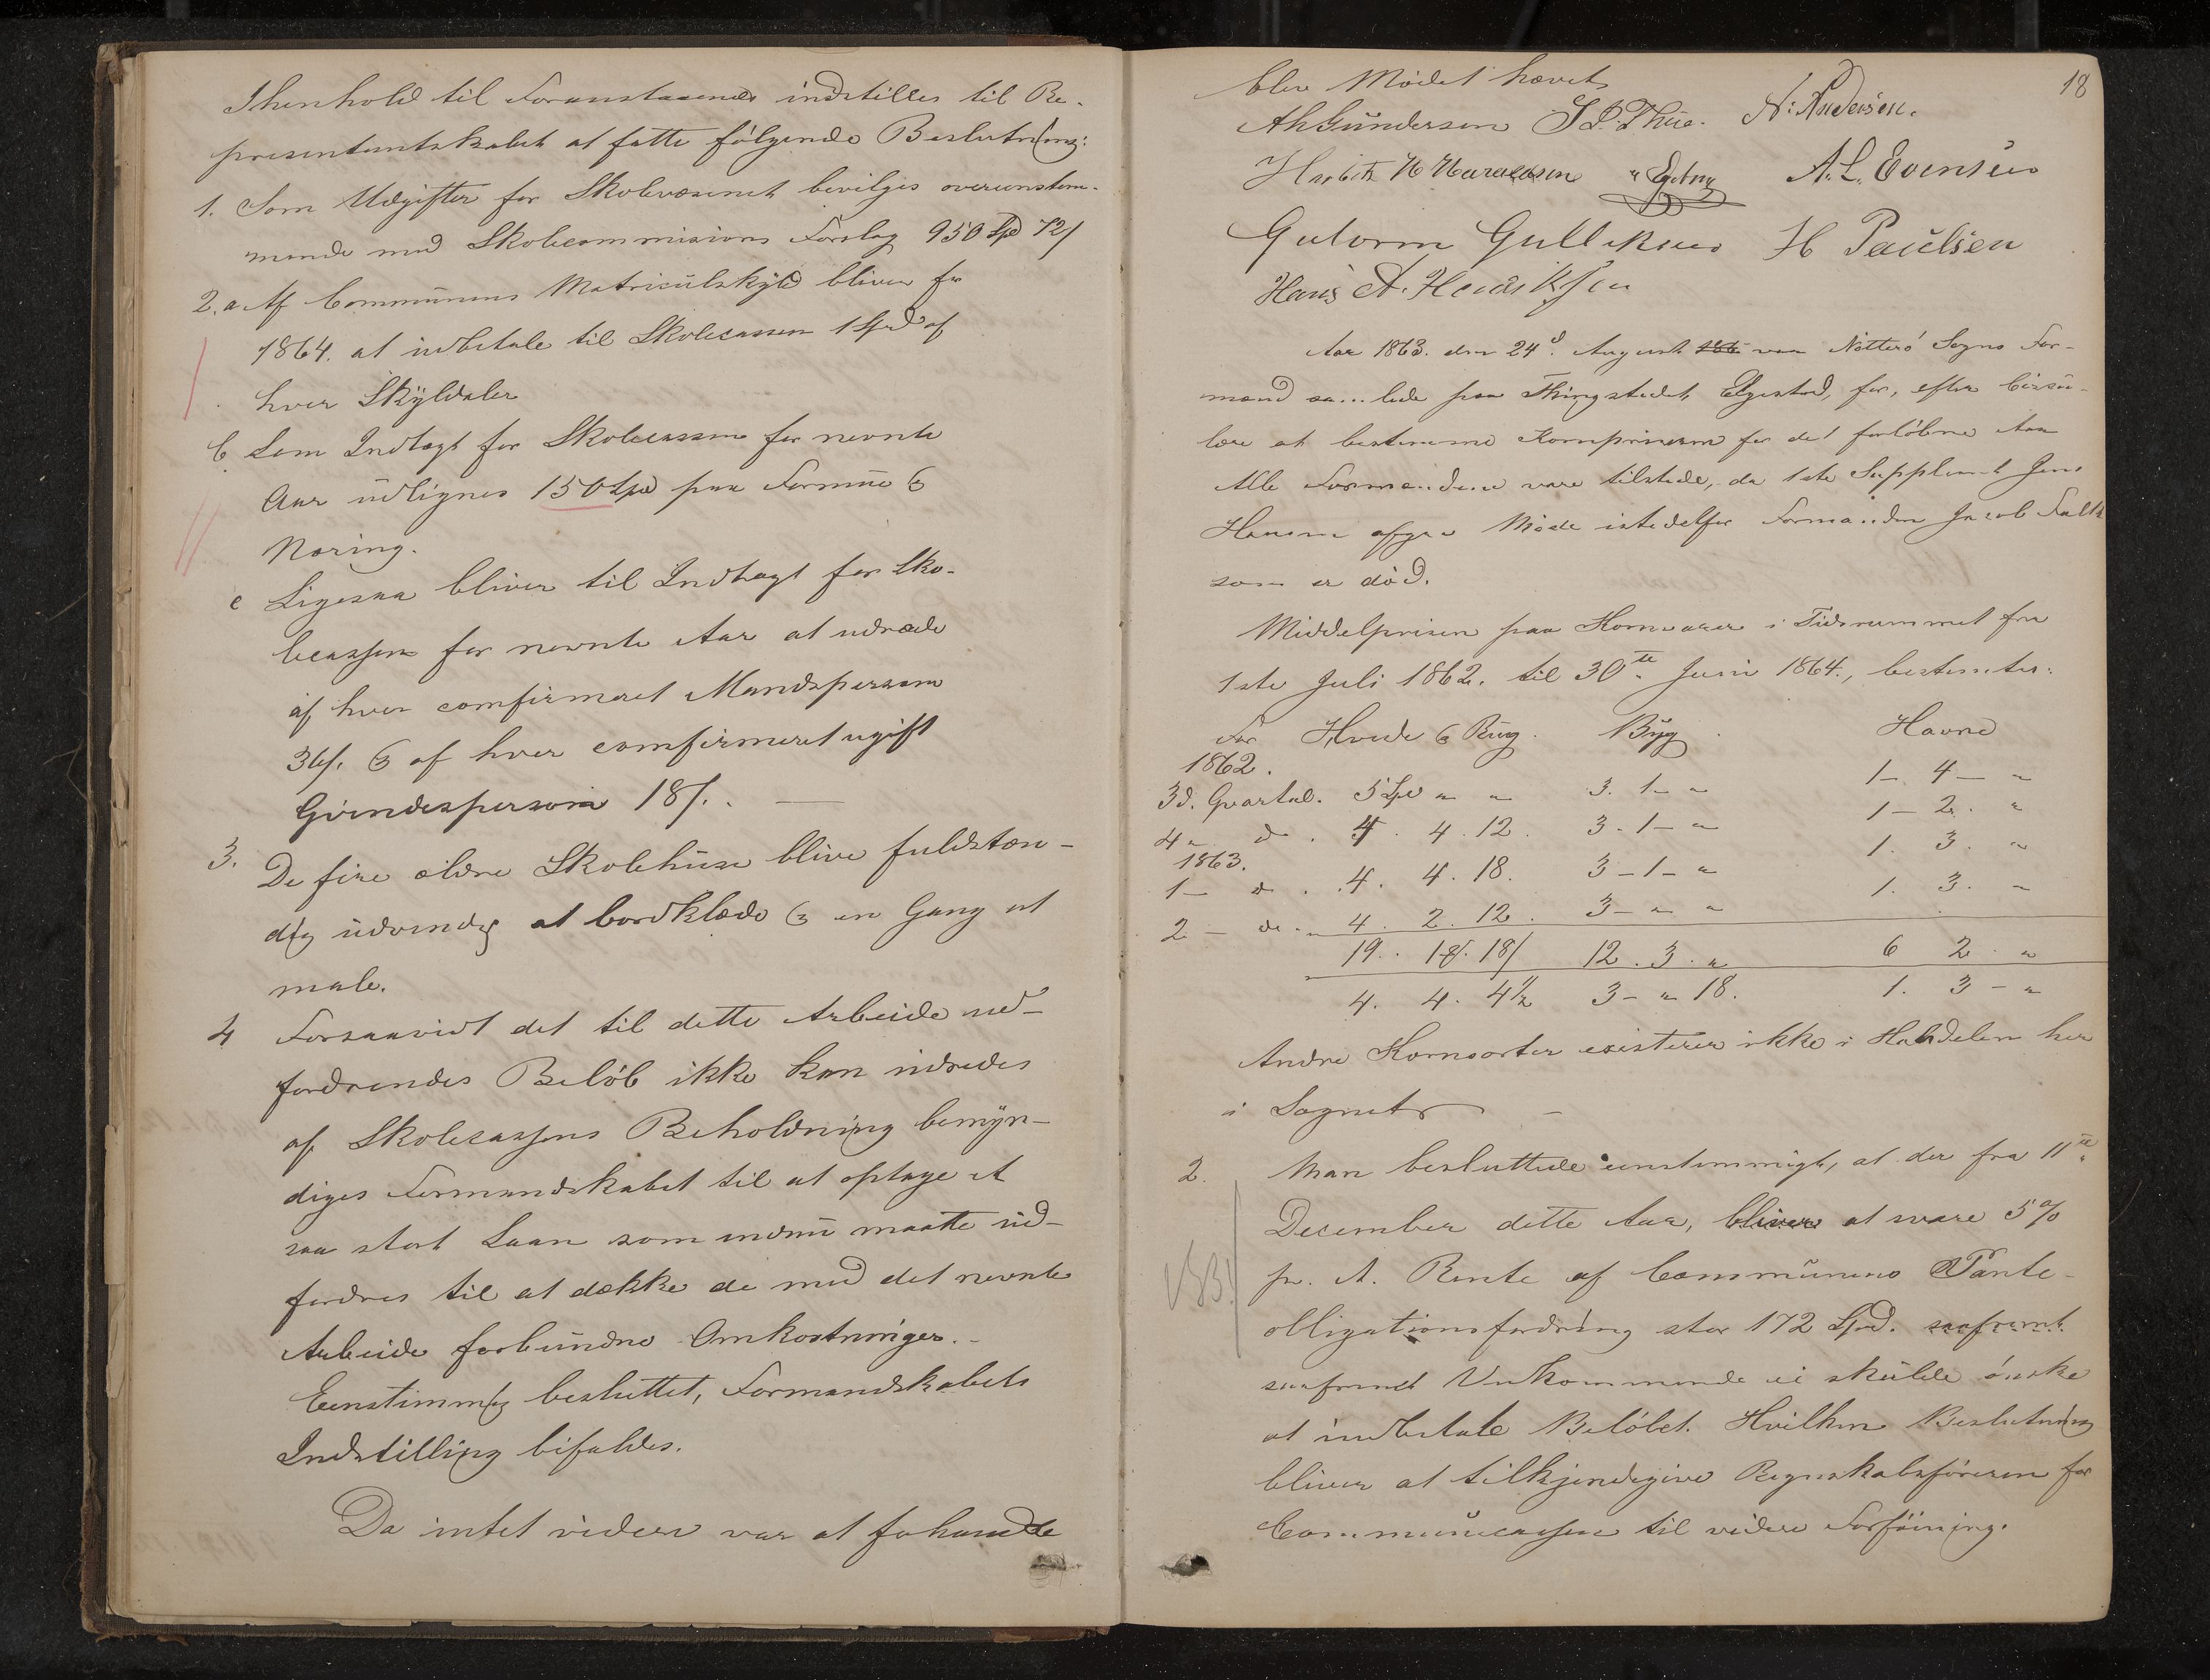 Ihenhold til Foranstaaende indstilles til Re-
presentantskabet at fatte følgende Beslutning:
1. Som Udgifter for Skolevæsenet bevilges overeenstem-
mende med Skolecommisions Forslag 950 Spd 72/
2. a Af Communens Matriculskyld bliver for
1864. at indbetale til Skolecassen 1 Spd af
hver Skyldaler
b Som Indtægt for Skolecassen for nevnte
Aar udlignes 150 Spd paa Formue &
Næring.
c Ligesaa bliver til Indtægt for Sko-
lecassen for nevnte Aar at udrede
af hver comfirmeret Mandsperson
36/. & af hver comfirmeret ugift
Qvindesperson 18/.
3. De fire ældre Skolehuse blive fuldstæn-
dig udvendig at bordklæde & en Gang at
male.
4 Forsaavidt det til dette Arbeide ud-
fordrendes Beløb ikke kan udredes
af Skolecassens Beholdning bemyn-
diges Formandskabet til at optage et
saa stort Laan som endnu maatte ud-
fordres til at dække de med det nevnte
Arbeide forbundne Omkostninger.
Eenstimmig besluttet, Formandskabets
Indstilling bifaldes.
Da intet videre var at fohandle
18
blev Mødet hævet
AhGundersen S P. Thue. N: Andersen.
H Haraldsen A. L. Evensen
Gutorm Gulliksen H Paulsen
Hans A. Hendriksen
Aar 1863. den 24d. August var Nøtterø Sogns For-
mænd sa...lede paa Thingstedet Elgestad, for, efter Circu-
lære at bestemme Kornpriserne for det forløbne Aar
Alle Formændene vare tilstede, da 1ste Suppleant Jens
Hansen afgav Møde istedetfor Formanden Jacob Falk
som er død.
Middelprisen paa Kornvarer i Tidsrummet fra
1ste Juli 1862. til 30te Juni 1864., bestemtes:
For Hvede & Rug. Byg. Havre
1862.
3d. Qvartal. 5 Spd " " 3. 1- " 1- 4- "
4 " d . 4 . 4 . 12 . 3 - 1 - " 1 - 2. "
1863.
1 - d . . 4 . 4 . 18 . 3 - 1 - " 1. 3. "
2 - d . " 4 . 2 . 12 . 3 - " " 1. 3. "
19. . 18/ 12 . 3 . " 6 2 . "
4. 4. 4½ 3 - " 18. 1. 3 - "
Andre Kornsorter existerer ikke i Handelen her
i Sognet
2. Man besluttede eenstemmigt, at der fra 11te
December dette Aar, bliver at svare 5%
pr. A. Rente af Communens Pante-
obligationsfordring stor 172 Spd. saafremt
saafremt Vedkommende ei skulde ønske
at indbetale Beløbet. Hvilken Beslutning
bliver at tilkjendegive Regnskabsføreren for
Communecassen til videre Forføining.